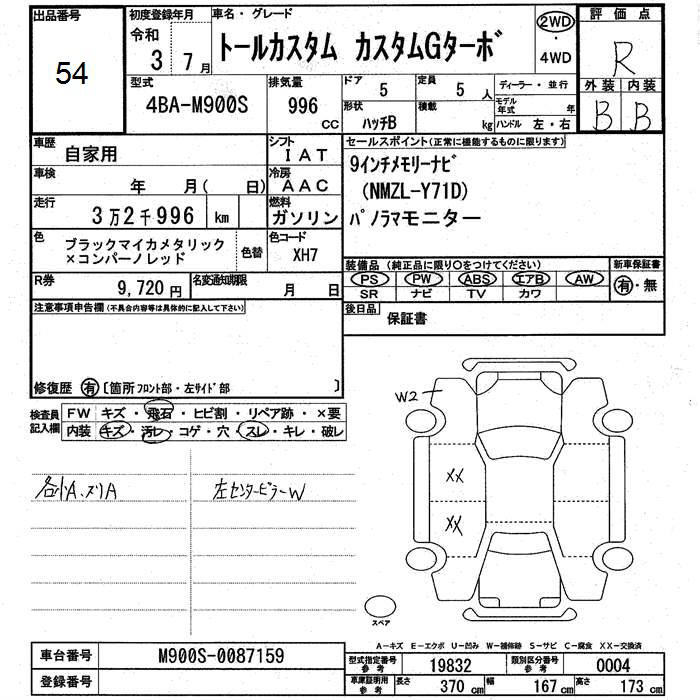 出品番号
54
初度登録年月
令和
3 7月
車名・グレード
トールカスタム カスタムGターボ
2WD
・
4WD
評価点
R
外装 内装
B B
型式
4BA-M900S
排気量
996
CC
ドア
5
定員
5 人
形状
ハッチB
積載
kg
ディーラー・並行
モデル年式 年
ハンドル 左・右
車歴
自家用
シフト
IAT
車検
年 月( 日)
冷房
AAC
走行
3万2千996 km
燃料
ガソリン
色
ブラックマイカメタリック
×コンパーノレッド
色替
色コード
XH7
セールスポイント(正常に機能するものに限ります)
9インチメモリーナビ
(NMZL-Y71D)
パノラマモニター
R券
9,720円
名変通知期限
月 日
装備品(純正品に限り〇をつけてください)
PS PW ABS エアB AW
SR ナビ TV カワ
新車保証書
有・無
注意事項申告欄(不具合内容等は具体的に記入して下さい)
後日品
保証書
修復歴 有 〔箇所 フロント部・左サイド部 〕
検査員記入欄
FW キズ・飛石・ヒビ割・リペア跡・×要
内装 キズ・汚レ・コゲ・穴・スレ・キレ・破レ
各小A、ズリA
左センターピラーW
W2
XX
XX
スペア
A-キズ E-エクボ U-凹み W-補修跡 S-サビ C-腐食 XX-交換済
車台番号
M900S-0087159
登録番号
型式指定番号
参考
19832
類別区分番号
参考
0004
車庫証明用
参考
長さ
370 cm
幅
167 cm
高さ
173 cm